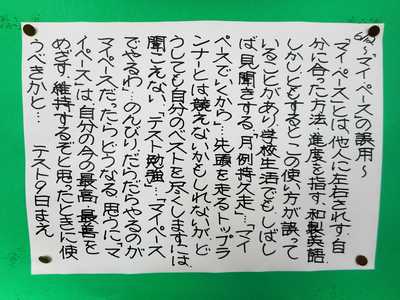 6/12
～マイペースの誤用～
「マイペース」とは、他人に左右されず、自
分に合った方法・進度を指す、和製英語。
しかし、ともすると、この使い方が誤って
いることがあり、学校生活でも、しばし
ば見聞きする。「月例持久走」…「マイ
ペースでいくから」…先頭を走るトップラ
ンナーとは競えないかもしれないが、ど
うしても自分のベストを尽くしますには
聞こえない。「テスト勉強」…「マイペース
でやるわ」…のんびり、だらだらやるのが
マイペースだったらどうなる。思うに、「マ
イペース」は、自分の今の最高・最善を
めざす、維持するぞと思ったときに使
うべきかと…
テスト9日まえ